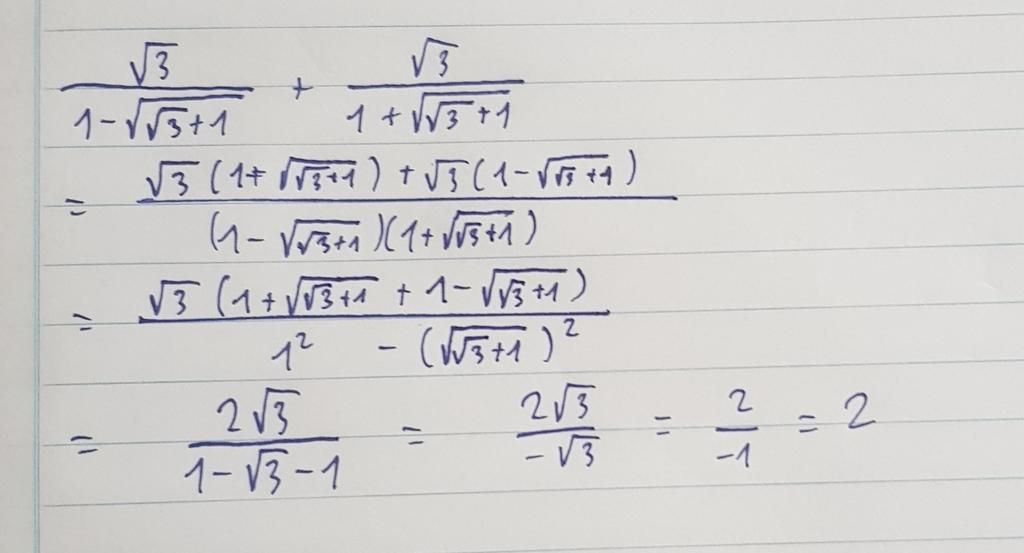 √3/(1-√(√3+1)) + √3/(1+√(√3+1))
= (√3(1+√(√3+1))+√3(1-√(√3+1)))/((1-√(√3+1))(1+√(√3+1)))
= (√3(1+√(√3+1)+1-√(√3+1)))/(1²-(√(√3+1))²)
= 2√3/(1-√3-1) = 2√3/(-√3) = 2/(-1) = 2